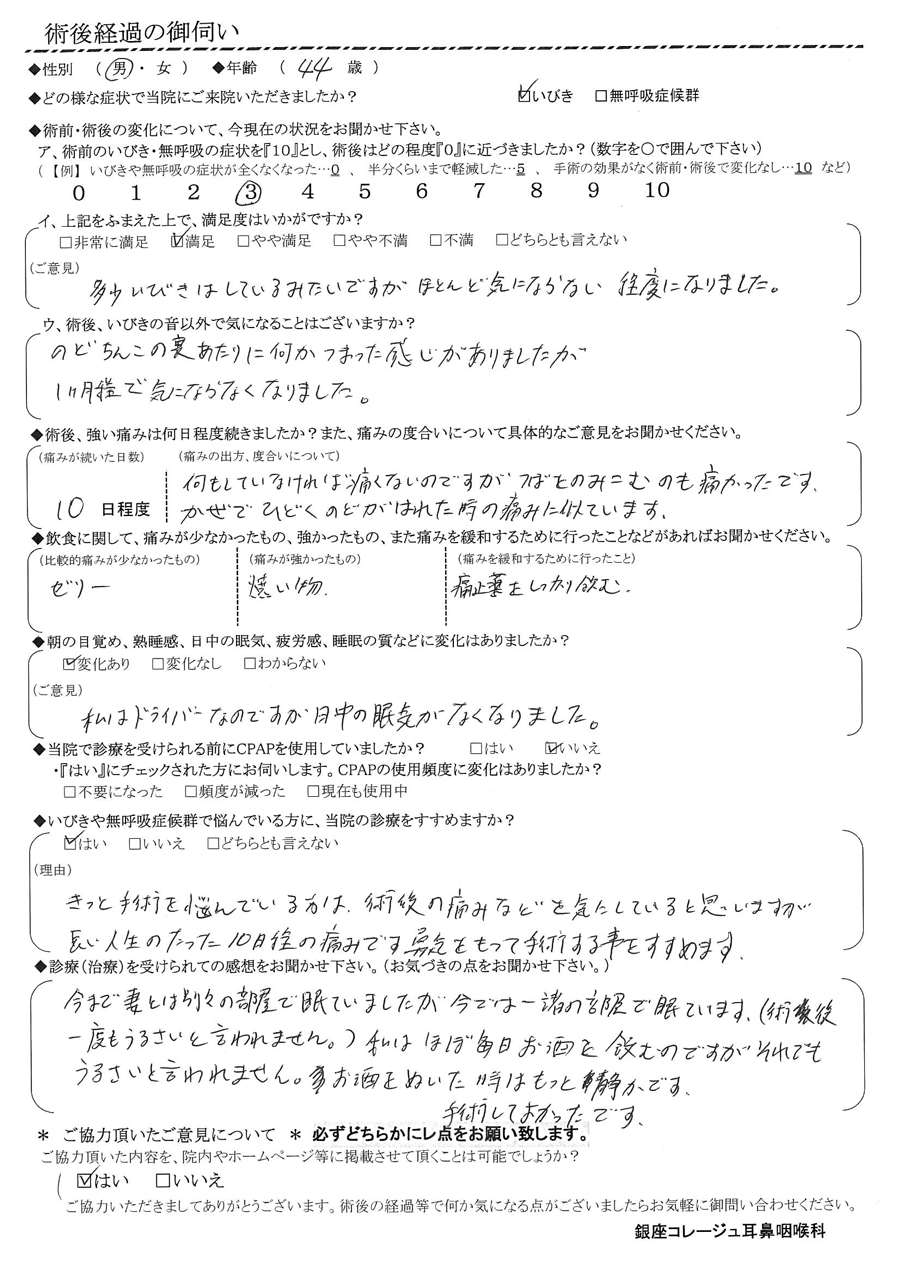 術後経過の御伺い
◆性別 (男・女) ◆年齢 (44歳)
◆どの様な症状で当院にご来院いただきましたか? ☑いびき □無呼吸症候群
◆術前・術後の変化について、今現在の状況をお聞かせ下さい。
ア、術前のいびき・無呼吸の症状を『10』とし、術後はどの程度『0』に近づきましたか?(数字を○で囲んで下さい)
(【例】いびきや無呼吸の症状が全くなくなった…0 、 半分くらいまで軽減した…5 、 手術の効果がなく術前・術後で変化なし…10 など)
0 1 2 3 4 5 6 7 8 9 10
イ、上記をふまえた上で、満足度はいかがですか?
□非常に満足 ☑満足 □やや満足 □やや不満 □不満 □どちらとも言えない
(ご意見)
多少いびきはしているみたいですがほとんど気にならない程度になりました。
ウ、術後、いびきの音以外で気になることはございますか?
のどちんこの裏あたりに何かつまった感じがありましたが
1ヶ月程で気にならなくなりました。
◆術後、強い痛みは何日程度続きましたか?また、痛みの度合いについて具体的なご意見をお聞かせください。
(痛みが続いた日数) (痛みの出方、度合いについて)
何もしていなければ痛くないのですがつばをのみこむのも痛かったです。
10 日程度 かぜでひどくのどがはれた時の痛みに似ています。
◆飲食に関して、痛みが少なかったもの、強かったもの、また痛みを緩和するために行ったことなどがあればお聞かせください。
(比較的痛みが少なかったもの) (痛みが強かったもの) (痛みを緩和するために行ったこと)
ゼリー い物. 痛止薬をしっかり飲む.
◆朝の目覚め、熟睡感、日中の眠気、疲労感、睡眠の質などに変化はありましたか?
☑変化あり □変化なし □わからない
(ご意見)
私はドライバーなのですが日中の眠気がなくなりました。
◆当院で診療を受けられる前にCPAPを使用していましたか? □はい ☑いいえ
・『はい』にチェックされた方にお伺いします。CPAPの使用頻度に変化はありましたか?
□不要になった □頻度が減った □現在も使用中
◆いびきや無呼吸症候群で悩んでいる方に、当院の診療をすすめますか?
☑はい □いいえ □どちらとも言えない
(理由)
きっと手術を悩んでいる方は、術後の痛みなどを気にしていると思いますが
長い人生のたった10日程の痛みです勇気をもって手術する事をすすめます.
◆診療(治療)を受けられての感想をお聞かせ下さい。(お気づきの点をお聞かせ下さい。)
今まで妻とは別々の部屋で眠ていましたが今では一諸の部屋で眠ています、(術後
一度もうるさいと言われません。)私はほぼ毎日お酒を飲むのですがそれでも
うるさいと言われません。お酒をぬいた時はもっと静かです.
手術してよかったです.
* ご協力頂いたご意見について * 必ずどちらかにレ点をお願い致します。
ご協力頂いた内容を、院内やホームページ等に掲載させて頂くことは可能でしょうか?
☑はい □いいえ
ご協力いただきましてありがとうございます。術後の経過等で何か気になる点がございましたらお気軽に御問い合わせください。
銀座コレージュ耳鼻咽喉科